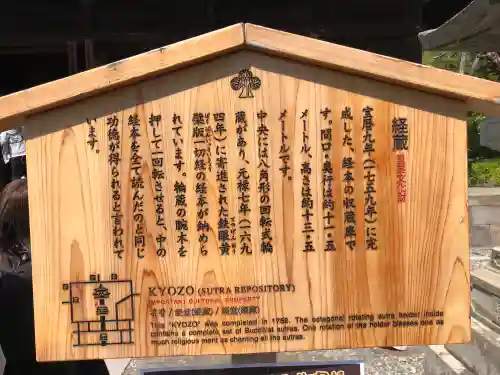 経蔵
重要文化財
宝暦九年(一七五九年)に完
成した、経本の収蔵庫で
す。間口・奥行は約十一・五
メートル、高さは約十三・五
メートルです。
中央には八角形の回転式輪
蔵があり、元禄七年(一六九
四年)に寄進された鉄眼黄
檗版一切経の経本が納めら
れています。輪蔵の腕木を
押して一回転させると、中の
経本を全て読んだのと同じ
功徳が得られると言われて
います。
KYOZO (SUTRA REPOSITORY)
IMPORTANT CULTURAL PROPERTY
This "KYOZO" was completed in 1759. The octagonal rotating sutra holder inside
contains a complete set of Buddhist sutras. One rotation of the holder blesses one
as much religious merit as chanting all the sutras.